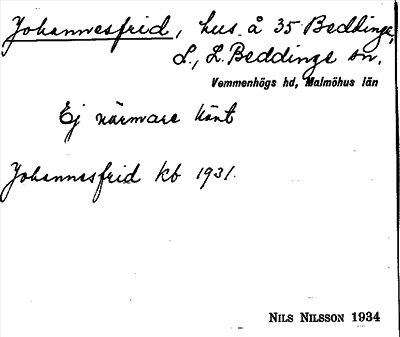 Johannesfrid, hus å 35 Beddinge,
L., L. Beddinge sn.
Vemmenhögs hd, Malmöhus län
Ej närmare känt
Johannesfrid kb 1931.
NILS NILSSON 1934